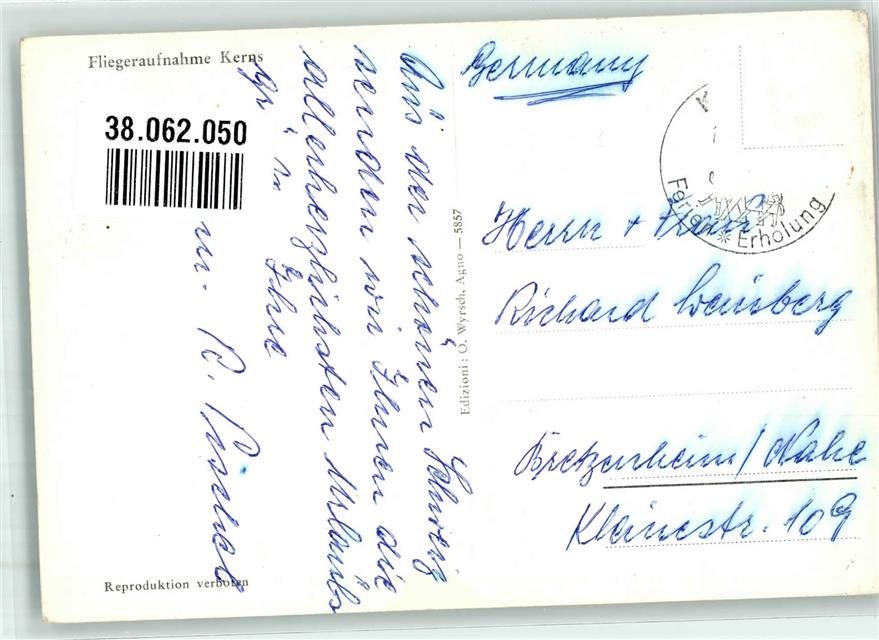 Fliegeraufnahme Kerns
38.062.050
Aus der schönen Schweiz
senden wir Ihnen die
allerherzlichsten Urlaubs
Ihre
u. R.
Edizioni: O. Wyrsch, Agno — 5857
Reproduktion verboten
Germany
Erholung
Herrn + Frau
Richard Weinsberg
Bretzenheim/Nahe
Kleinestr. 109